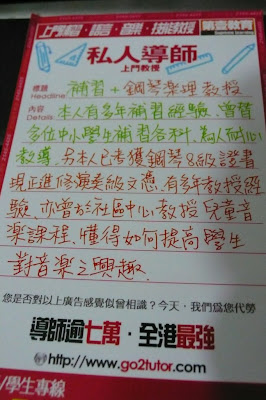 精進教育
私人導師
上門教授
標題
Headline: 補習 + 鋼琴樂理教授
內容
Details: 本人有多年補習經驗，曾替
多位中小學生補習各科，為人耐心
教導，另本人已考獲鋼琴8級證書
現正進修演奏級文憑，有多年教授經
驗，亦曾於社區中心教授兒童音
樂課程，懂得如何提高學生
對音樂之興趣.
您是否對以上廣告感覺似曾相識？今天，我們為您代勞
導師逾七萬‧全港最強
http://www.go2tutor.com
/學生專線